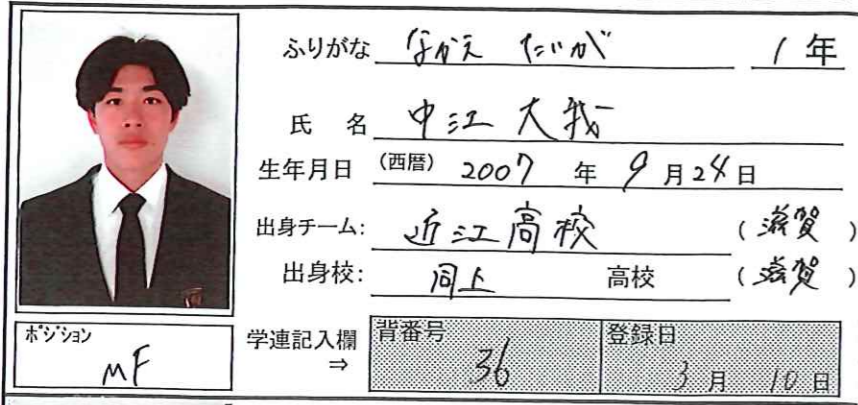 ふりがな なかえ たいが 1年
氏名 中江 大我
生年月日 (西暦) 2007 年 9 月 24 日
出身チーム: 近江高校 (滋賀)
出身校: 同上 高校 (滋賀)
ポジション MF
学連記入欄 ⇒ 背番号 36 登録日 3 月 10 日